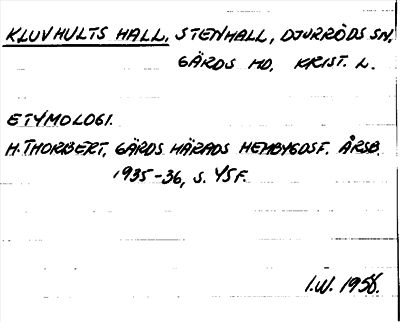 KLUVHULTS HALL, STENHALL, DJURRÖDS SN,
GÄRDS HD, KRIST. L.
ETYMOLOGI.
H. THORBERT, GÄRDS HÄRADS HEMBYGDSF. ÅRSB.
1935-36, S. 45 F.
I.W. 1958.